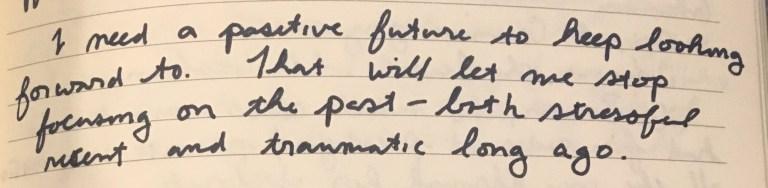 I need a positive future to keep looking
forward to. That will let me stop
focusing on the past - both stressful
recent and traumatic long ago.